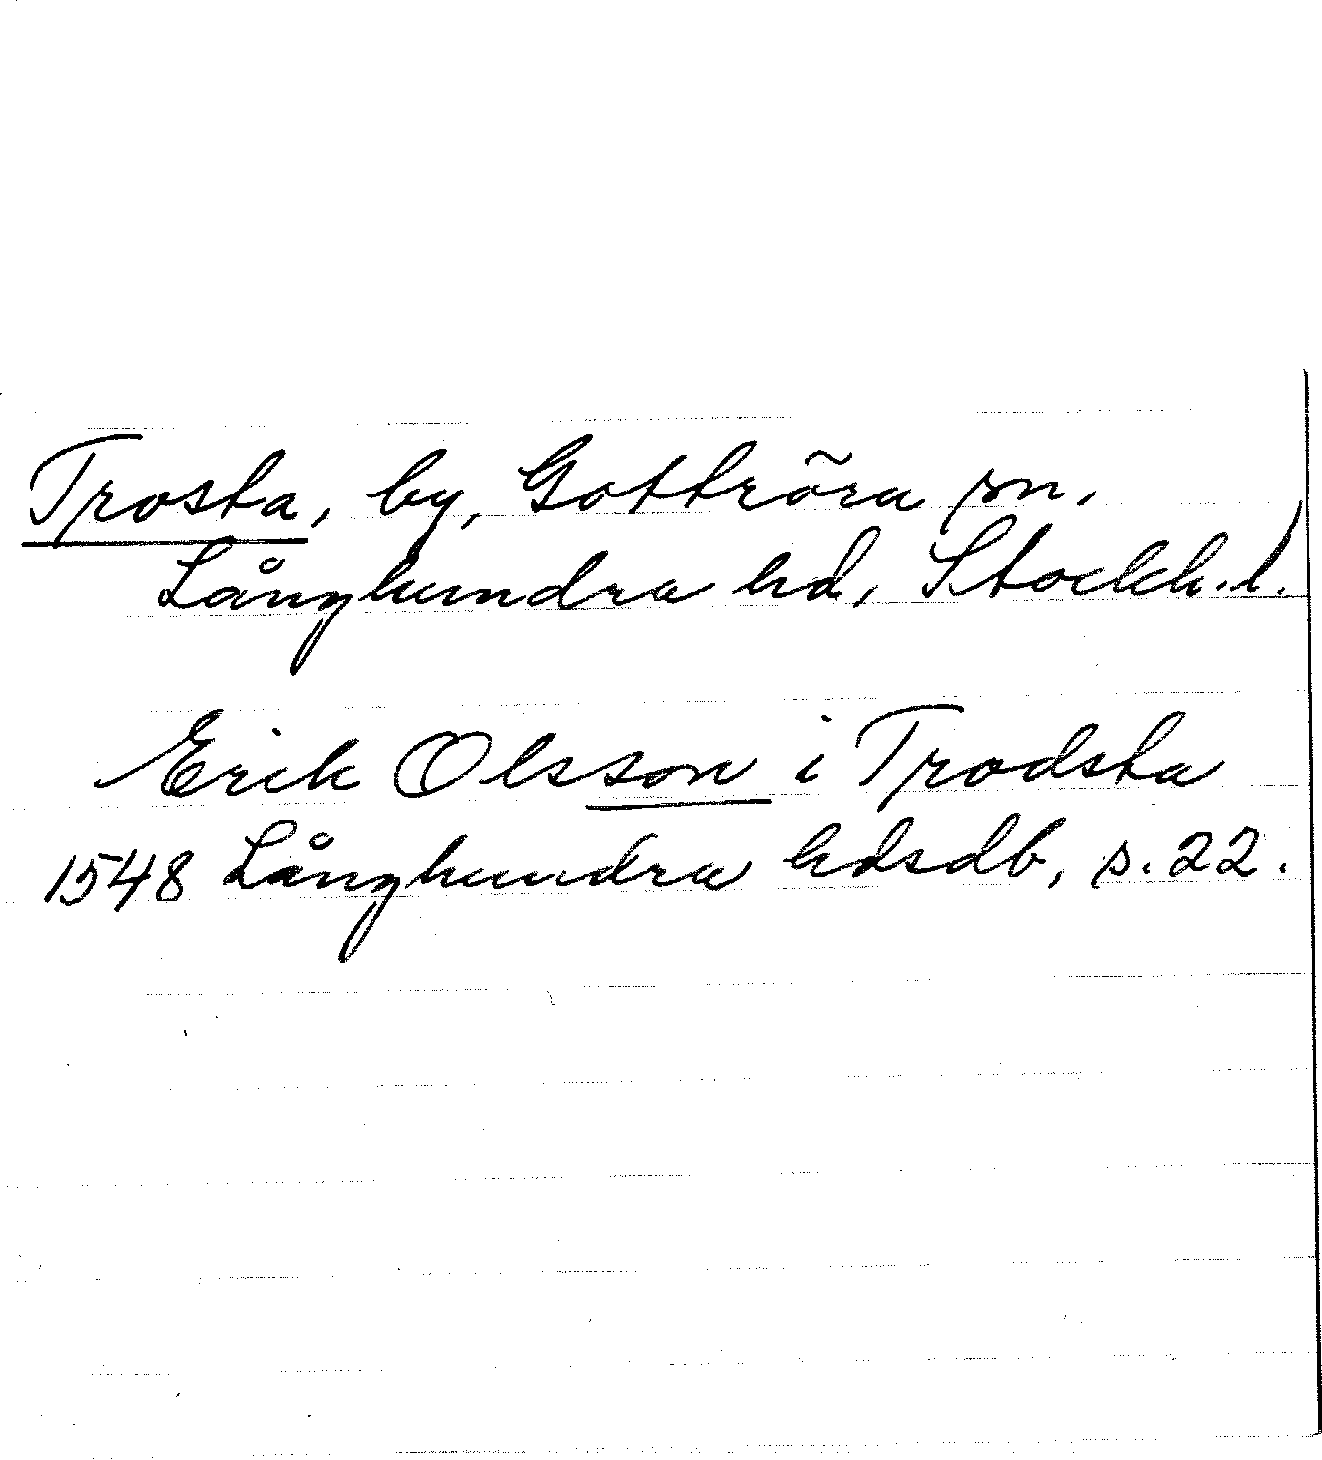 Trosta, by, Gottröra sn.
Långhundra hd, Stockh. l.
Erik Olsson i Trodsta
1548 Långhundra hdsdb, s. 22.